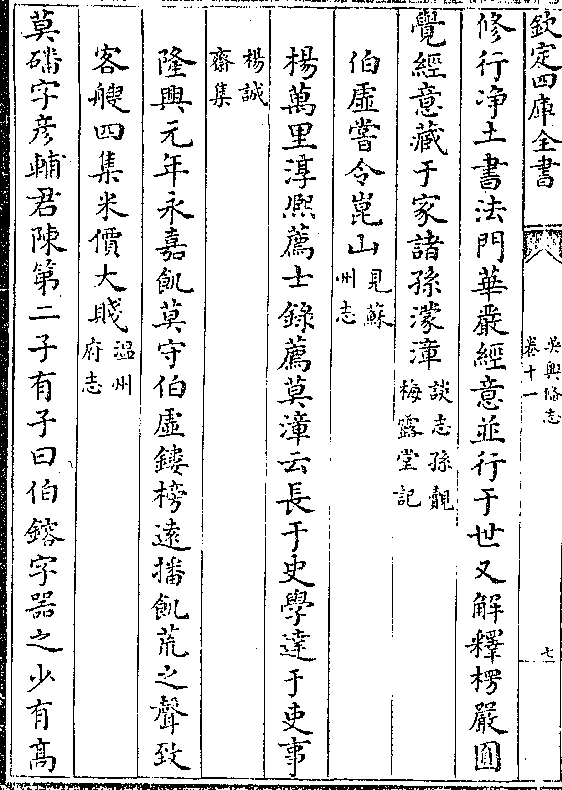 欽定四庫全書
吳興備志
卷十一
七
修行净土書法門華嚴經意並行于世又解釋楞嚴圓
覺經意藏于家諸孫濛漳
談志孫覿
梅露堂記
伯虛嘗令崑山
見蘇
州志
楊萬里淳熙薦士錄薦莫漳云長于史學達于吏事
楊誠
齋集
隆興元年永嘉飢莫守伯虛鏤榜遠播飢荒之聲致
客艘四集米價大賤
溫州
府志
莫磻字彦輔君陳第二子有子曰伯鎔字器之少有高